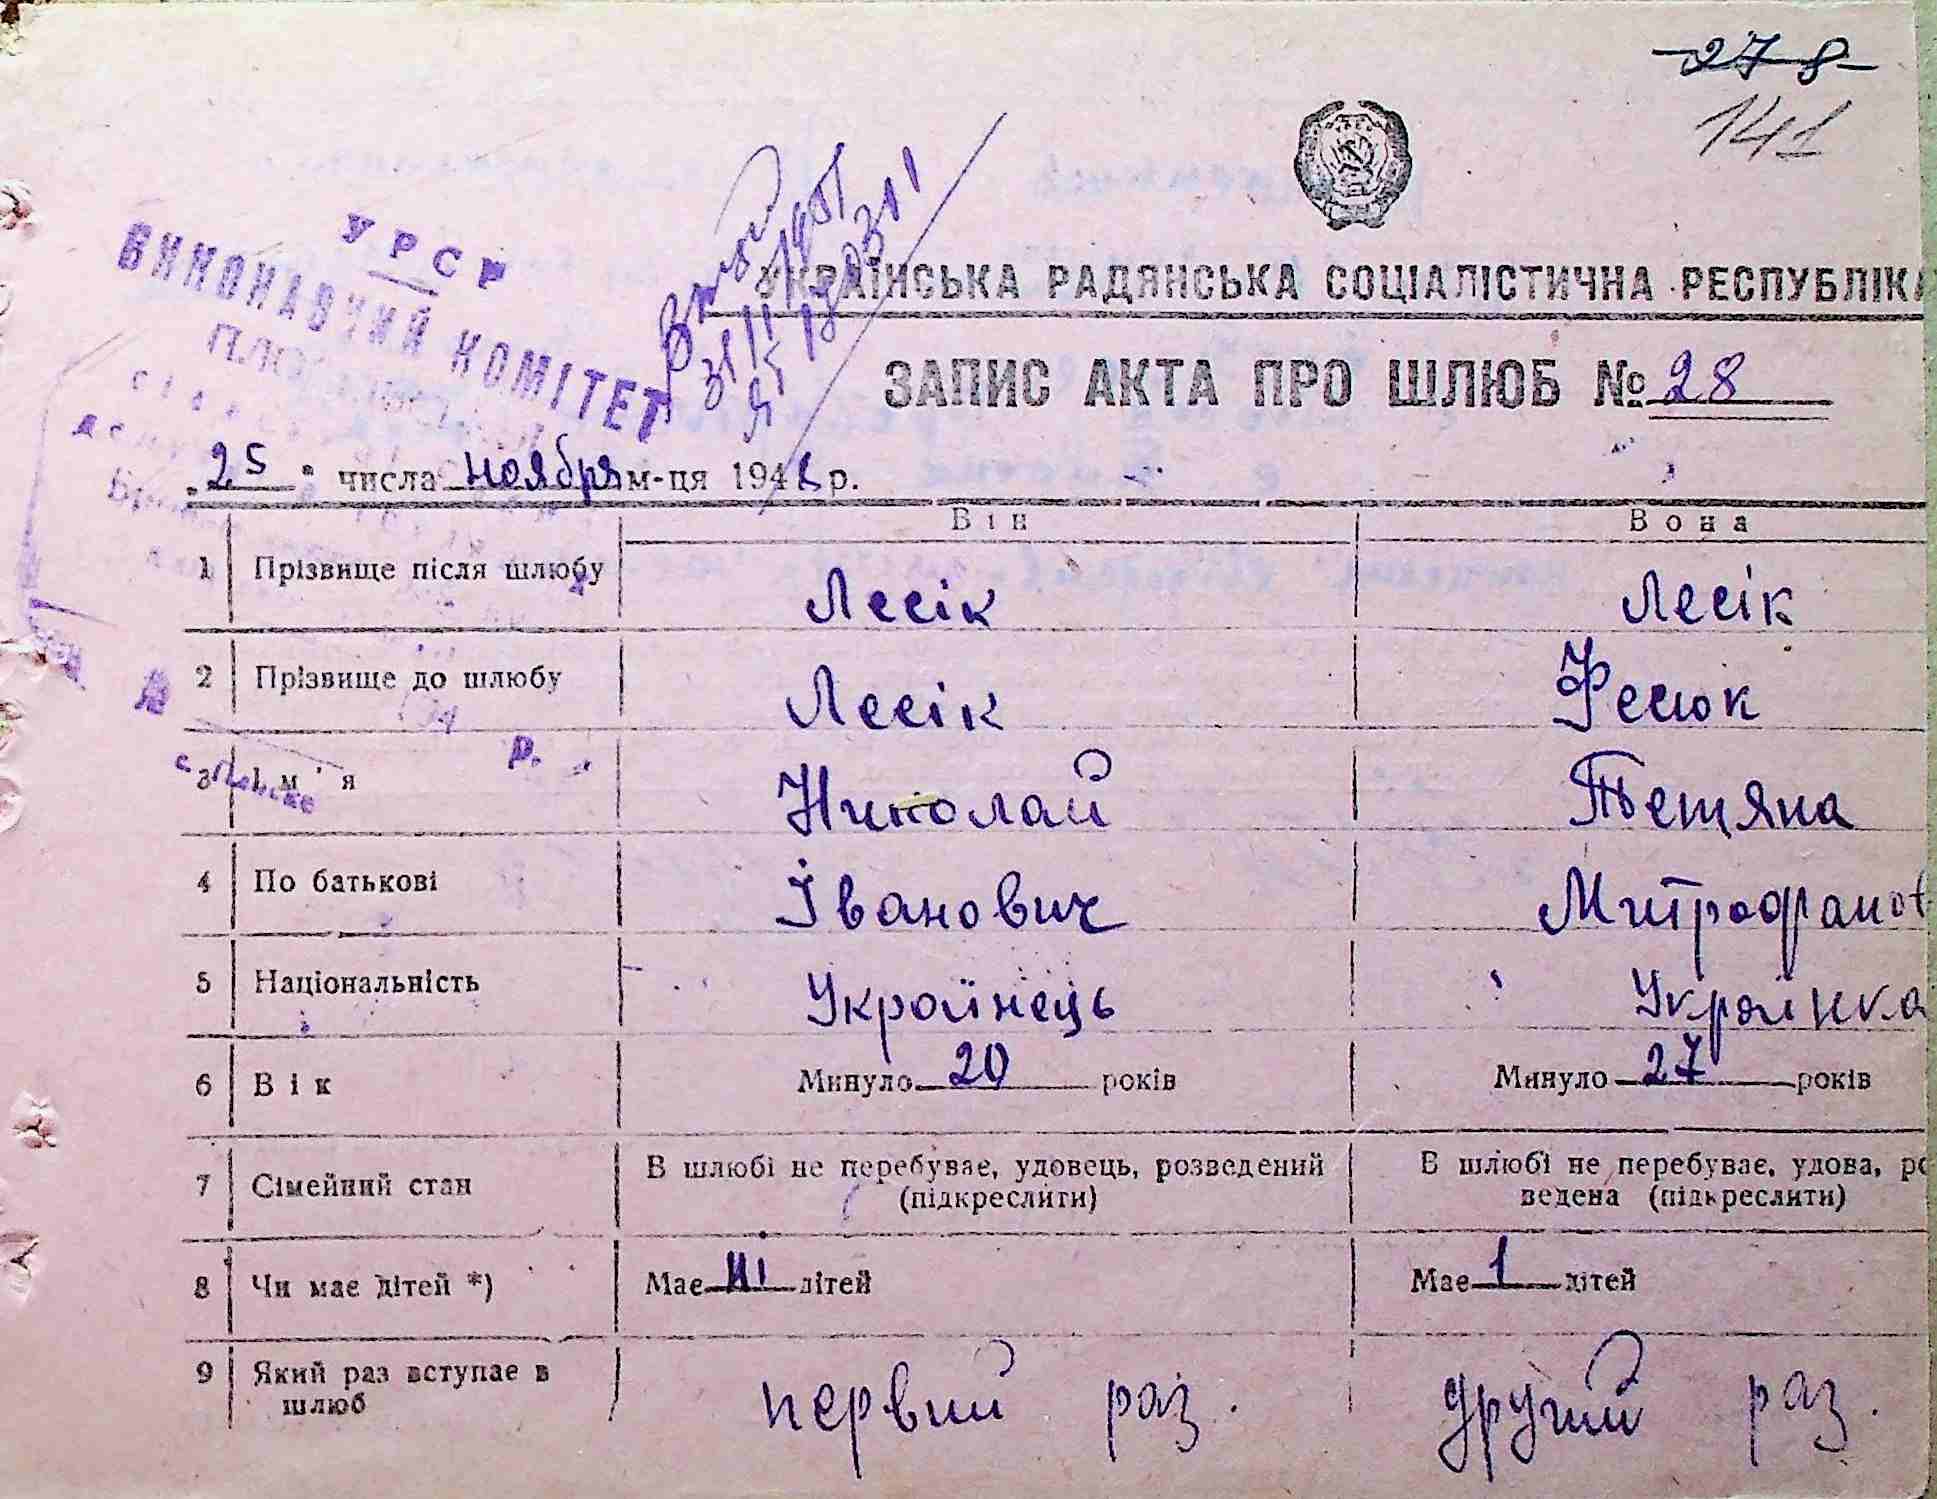 27 8
141
УРСР
ВИКОНАВЧИЙ КОМІТЕТ
УКРАЇНСЬКА РАДЯНСЬКА СОЦІАЛІСТИЧНА РЕСПУБЛІКА
ЗАПИС АКТА ПРО ШЛЮБ № 28
25 числа ноября м-ця 1948 р.
Він Вона
1 Прізвище після шлюбу Лесік Лесік
2 Прізвище до шлюбу Лесік Фесюк
р.
3 Ім'я Николай Тетяна
4 По батькові Іванович Митрофанов
5 Національність Українець Українка
6 Вік Минуло 20 років Минуло 27 років
7 Сімейний стан В шлюбі не перебуває, удовець, розведений В шлюбі не перебуває, удова, ро
(підкреслити) ведена (підкреслити)
8 Чи має дітей *) Має ні дітей Має 1 дітей
9 Який раз вступає в
шлюб первий раз. другий раз.